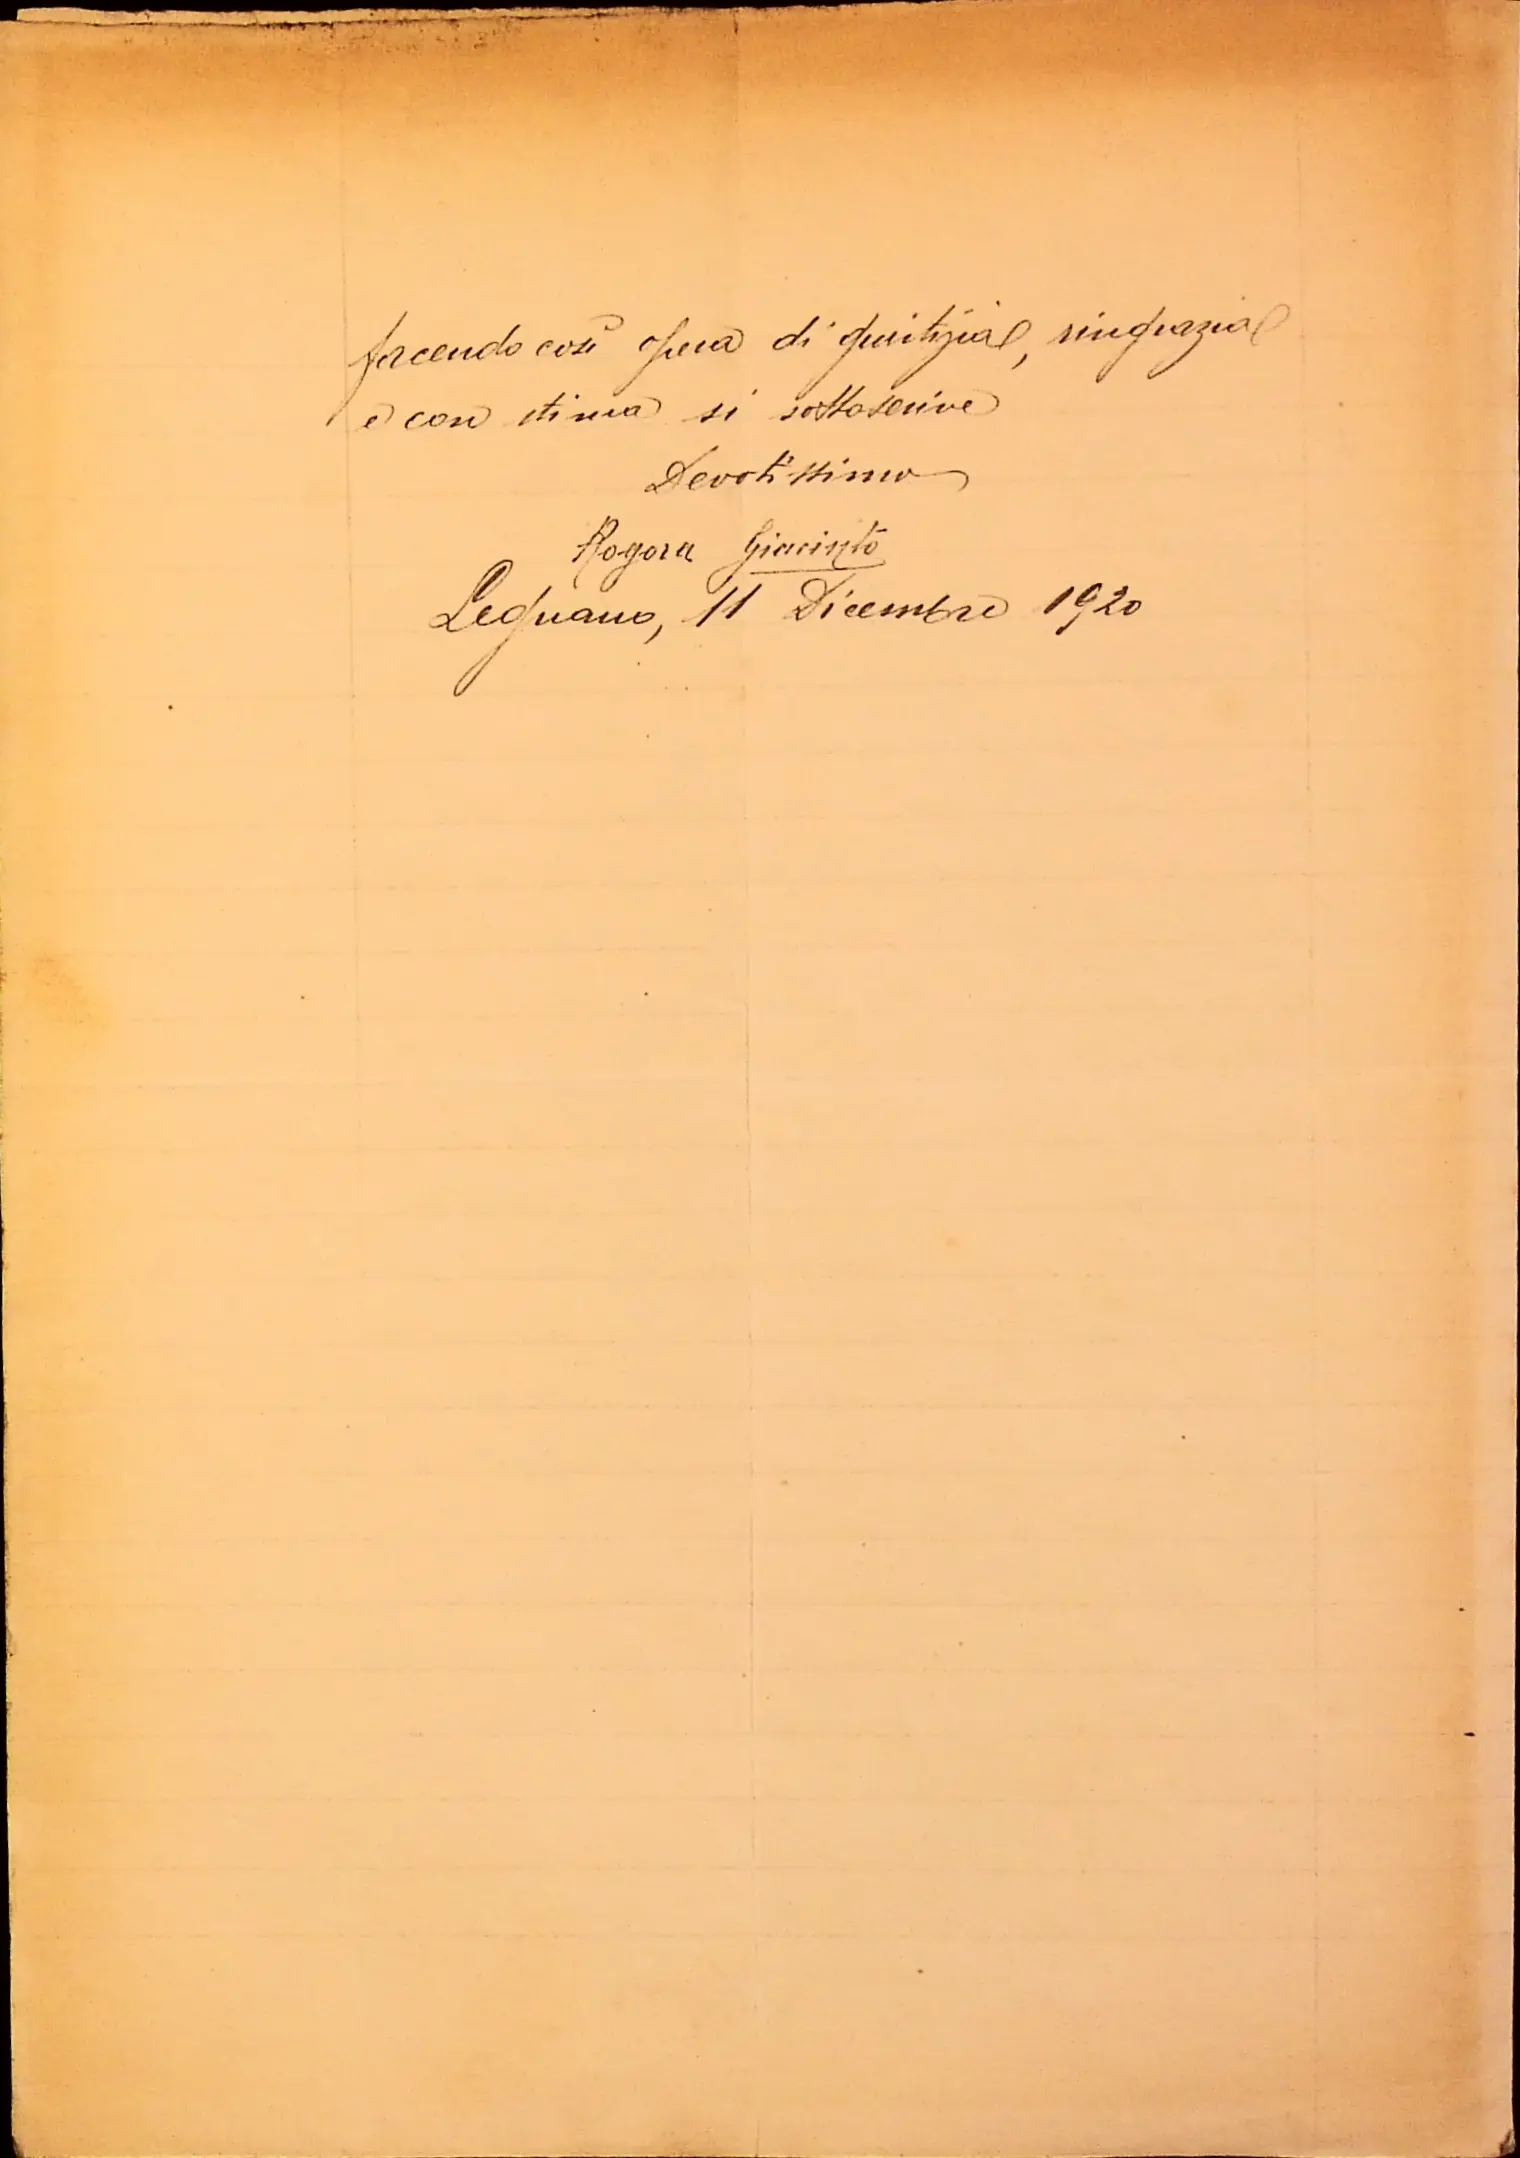 facendo così opera di giustizia, ringrazia
e con stima si sottoscrive
Devotissimo
Rogora Giacinto
Legnano, 11 Dicembre 1920